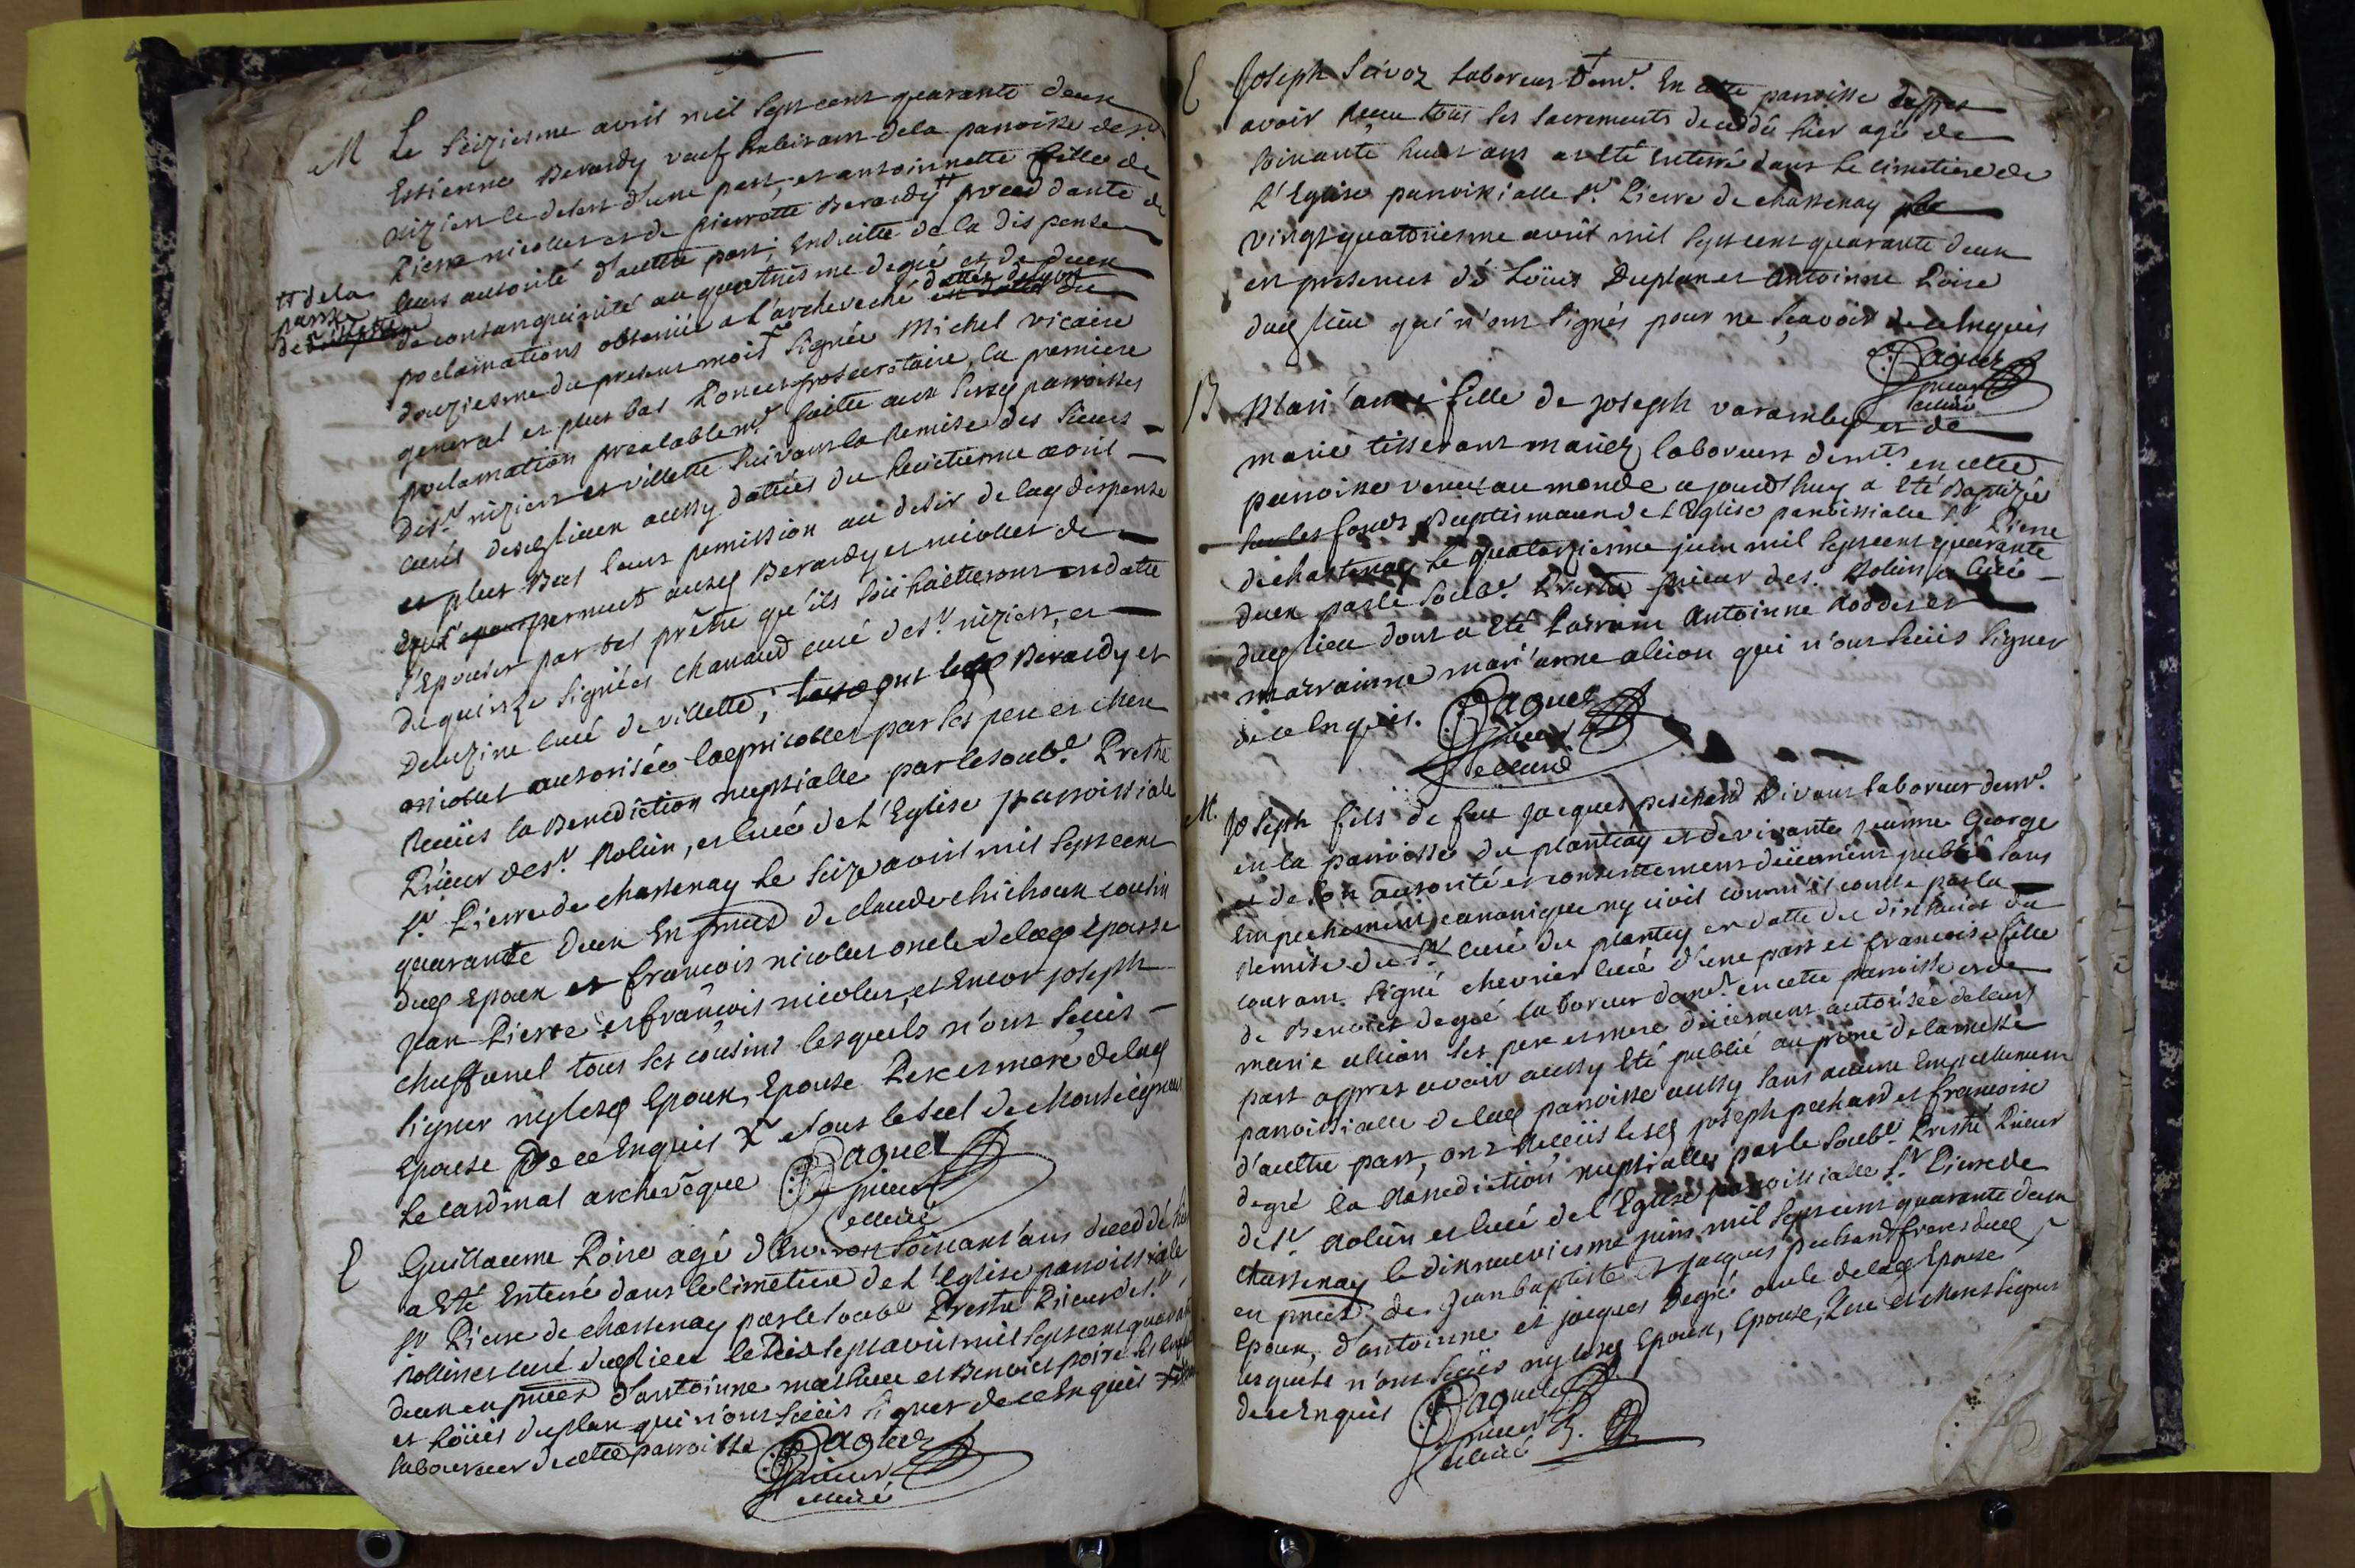 M Le Seiziesme avril mil sept cent quarante deux
Estienne Berardy veuf habitant de la paroisse de st
nizier le desert d'une part, et antoinnette fille de
Pierre nicollet et de pierrette Berardy †† procedante de
leurs autorité d'autre part; Ensuitte de la dispense
†† de la
parsse
de villette
de consanguinité au quatriesme degré et de deux
proclamations obtenüe a l'archeveché dattée de lyon du
douziesme du present mois Signée Michel vicaire
general et plus bas prosecretaire, la premiere
proclamation prealablemt faitte aux susd paroisses
de st nizier et villette suivant la Remise des sieurs
curés desd lieux aussy dattées du huictiesme avril
et plus Bas leurs permission au desir de lad dispense
permis auxd Berardy et nicollet de
s'Epouser par tel prêtre qu'ils souhaitteront en datte
du quinze signées chanaud curé de st nizier, et
Deluzine curé de villette; lesd Berardy et
nicollet autorisée lad nicollet par ses pere et mere
Reçüs la Benediction nuptialle par le soubé Prestre
Prieur de st Rolin, et curé de l'Eglise parroissiale
st Pierre de chastenay le seize avril mil sept cent
quarante deux En pnces de claude chichoux cousin
dud Epoux et françois nicollet oncle de lad Epouse
Jean Pierre et françois nicollet, et Encor joseph
chaffanel tous ses cousins lesquels n'ont sçeüs
signer ny lesd Epoux, Epouse Pere et mere de lad
Epouse De ce Enquis X sous le scel de Monseigneur
le cardinal archevêque Paquet
prieur
et curé
E Guillaume Poire agé d'Environ soixant'ans decedé hier
a Eté Enterré dans le cimetiere de l'Eglise parroissiale
st Pierre de chastenay par le soubé Prestre Prieur de st
Rollin et curé dud lieu le dix sept avril mil sept cent quarante
deux en pnces d'antoinne mathieu et Benoict poire
et Loüis duplan qui n'ont sçeüs signer de ce Enquis
laboureur de cette parroisse Paquet
prieur
et curé
E Joseph Savoz laboreur demt En cette parroisse appres
avoir Reçu tous les sacrements decedé hier agé de
soixante huict ans a eté Enterré dans le cimetiere de
l'Eglise parroissialle st Pierre de chastenay le
vingt quatriesme avril mil sept cent quarante deux
en presences de Loüis Duplan et Antoinne Poire
dud lieu qui n'ont signés pour ne sçavoir de ce Enquis
Paquet
prieur
et curé
B Mari'anne fille de joseph varambed et de
marie tisserant mariez laboreurs demts en cette
parroisse venue au monde ajourd'huy a Eté Baptizée
sur les fonds Baptismaux de l'Eglise parroissialle st Pierre
de chastenay le quatorziesme juin mil sept cent quarante
deux par le soubé Prestre prieur de s. Rolin et curé
dud lieu dont a Eté parrain Antoinne Roddet et
marrainne mari'anne alcion qui n'ont sçeüs signer
de ce Enquis. Paquet
prieur
et curé
M. Joseph fils de feu Jacques pechard vivant laboreur demt
en la parroisse du plantay et de vivante jeanne George
et de son autorité et consentement düement publié sans
Empechement canonique ny civil comm'il conste par la
Remise du sr curé du plantey en datte du dixhuict du
courant signé chevrier curé d'une part et francoise fille
de Benoict degré laboreur demt en cette parroisse et de
marie alcion ses pere et mere düement autorisée de leurs
part appres avoir aussy Eté publié au prône de la messe
parroissialle de lad parroisse aussy sans aucun Empechement
d'autre part, ont Reçüs lesd joseph pechard et francoise
degré la Benediction nuptialles par le soubé Prestre Prieur
de st Rolin et curé de l'Eglise parroissialle st Pierre de
chastenay le dixneuviesme juin mil sept cent quarante deux
en pnces, de jean baptiste et jacques pechard freres dud
Epoux, d'antoinne et jacques Degré oncle de lad Epouse
lesquels n'ont sçeüs ny lesd Epoux, Epouse, Pere et Mere signer
de ce Enquis Paquet
prieur
et curé